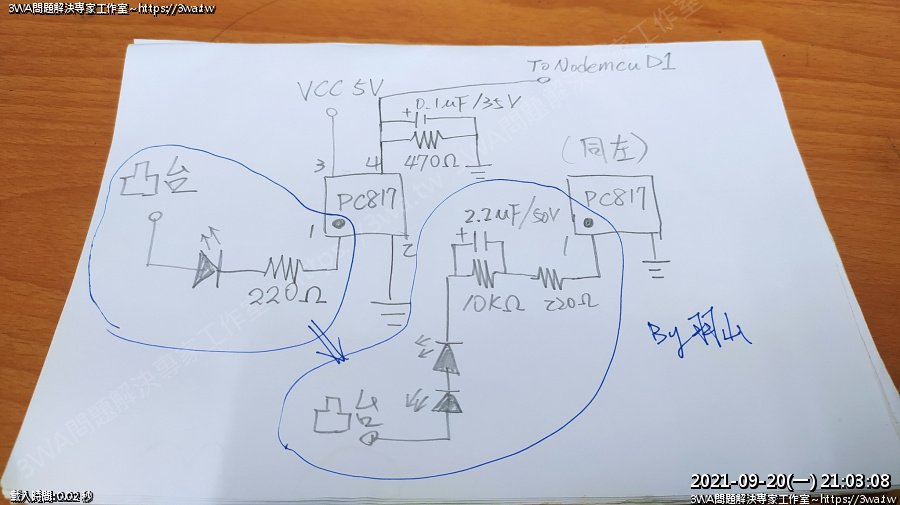 3WA問題解決專家工作室~https://3wa.tw
To Nodemcu D1
VCC 5V
+ 0.1uF/35V
3
4
470Ω
(同左)
凸台
PC817
PC817
1
2
2.2uF/50V
+
1
220Ω
10KΩ
220Ω
凸台
By 羽山
3WA問題解決專家工作室~https://3wa.tw
載入時間:0.02 秒
2021-09-20(一) 21:03:08
3WA問題解決專家工作室~https://3wa.tw